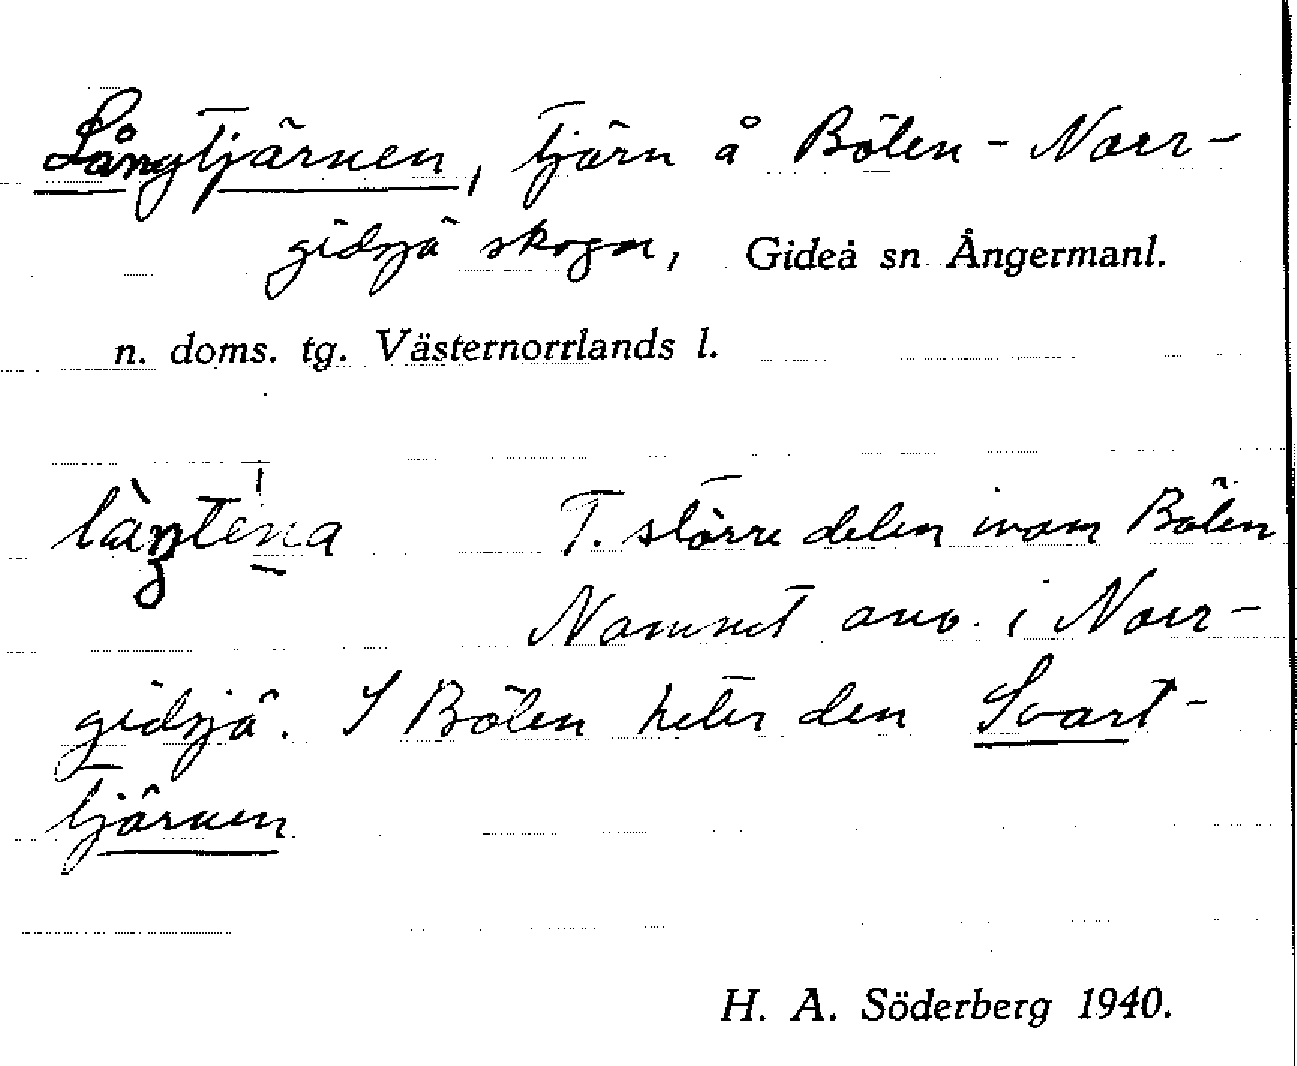 Långtjärnen, tjärn å Bölen - Norr-
gidsjö skogar, Gideå sn Ångermanl.
n. doms. tg. Västernorrlands l.
T. större delen inom Bölen
Namnet anv. i Norr-
gidsjö. I Bölen heter den Svart-
tjärnen
H. A. Söderberg 1940.